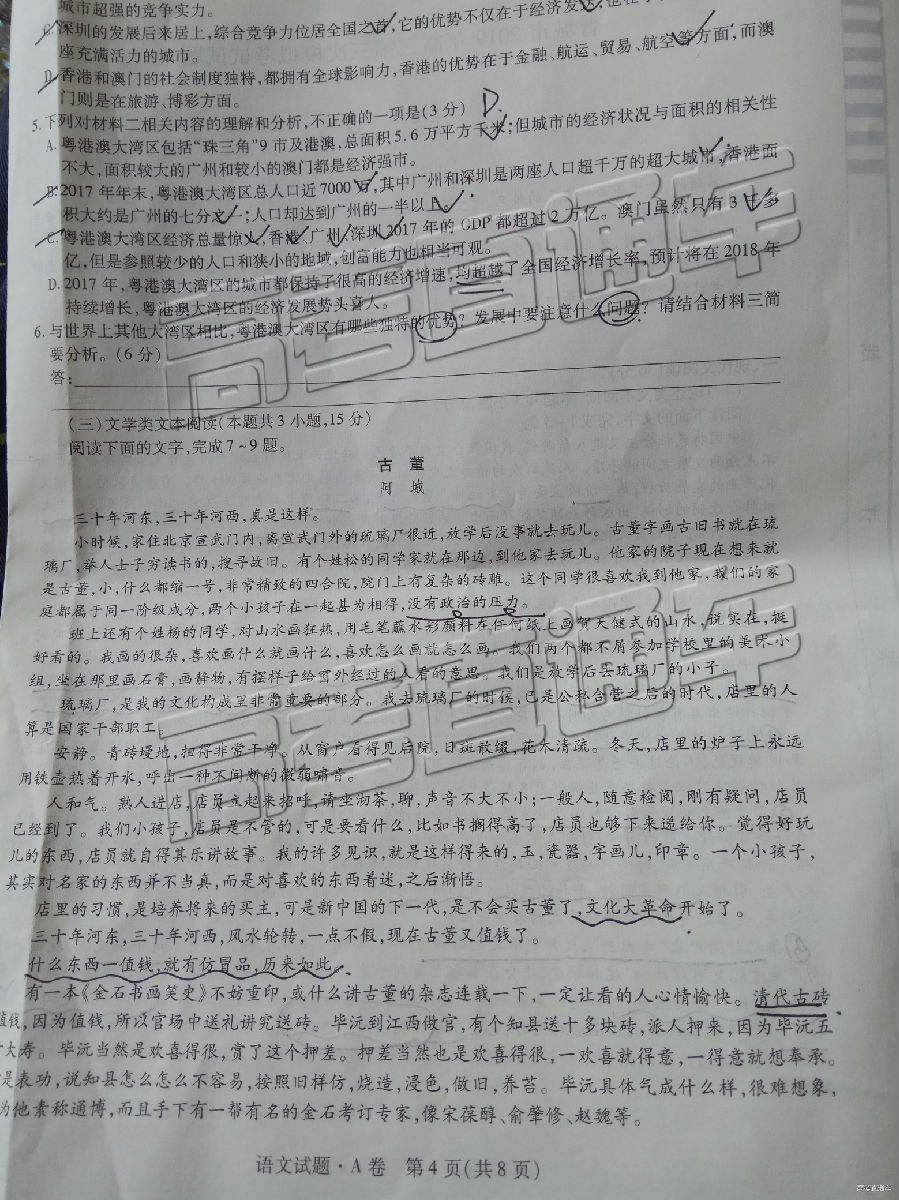 城市超强的竞争实力。
C.深圳的发展后来居上,综合竞争力位居全国之首,它的优势不仅在于经济发达,也在于
座充满活力的城市。
D.香港和澳门的社会制度独特,都拥有全球影响力,香港的优势在于金融、航运、贸易、航空等方面,而澳
门则是在旅游、博彩方面。
5.下列对材料二相关内容的理解和分析,不正确的一项是(3分) D.
A.粤港澳大湾区包括“珠三角”9市及港澳,总面积5.6万平方千米;但城市的经济状况与面积的相关性
不大,面积较大的广州和较小的澳门都是经济强市。
B.2017年年末,粤港澳大湾区总人口近7000万,其中广州和深圳是两座人口超千万的超大城市,香港面
积大约是广州的七分之一;人口却达到广州的一半以上。
C.粤港澳大湾区经济总量惊人,香港、广州、深圳2017年的GDP都超过2万亿。澳门虽然只有3千多
亿,但是参照较少的人口和狭小的地域,创富能力也相当可观。
D.2017年,粤港澳大湾区的城市都保持了很高的经济增速,均超越了全国经济增长率,预计将在2018年
持续增长,粤港澳大湾区的经济发展势头喜人。
6.与世界上其他大湾区相比,粤港澳大湾区有哪些独特的优势?发展中要注意什么问题?请结合材料三简
要分析。(6分)
答:
(三)文学类文本阅读(本题共3小题,15分)
阅读下面的文字,完成7~9题。
古 董
阿 城
三十年河东,三十年河西,真是这样。
小时候,家住北京宣武门内,离宣武门外的琉璃厂很近,放学后没事就去玩儿。古董字画古旧书就在琉
璃厂,举人士子穷读书的,搜寻故旧。有个姓松的同学家就在那边,到他家去玩儿。他家的院子现在想来就
是古董,小,什么都缩一号,非常精致的四合院,院门上有复杂的砖雕。这个同学很喜欢我到他家,我们的家
庭都属于同一阶级成分,两个小孩子在一起甚为相得,没有政治的压力。
班上还有个姓杨的同学,对山水画狂热,用毛笔蘸水彩颜料在任何纸上画贺天健式的山水,说实在,挺
好看的。我画的很杂,喜欢画什么就画什么,喜欢怎么画就怎么画。我们两个都不屑参加学校里的美术小
组,坐在那里画石膏,画静物,有摆样子给窗外经过的人看的意思。我们是放学后去琉璃厂的小子。
琉璃厂,是我的文化构成里非常重要的部分。我去琉璃厂的时候,已是公私合营之后的时代,店里的人
算是国家干部职工。
安静。青砖墁地,扫得非常干净。从窗户看得见后院,日斑散缀,花木清疏。冬天,店里的炉子上永远
用铁壶热着开水,呼出一种不间断的微弱啸音。
人和气。熟人进店,店员立起来招呼,请坐沏茶,聊,声音不大不小;一般人,随意检阅,刚有疑问,店员
已经到了。我们小孩子,店员是不管的,可是要看什么,比如书搁得高了,店员也够下来递给你。觉得好玩
儿的东西,店员就自得其乐讲故事。我的许多见识,就是这样得来的,玉,瓷器,字画儿,印章。一个小孩子,
其实对名家的东西并不当真,而是对喜欢的东西着迷,之后渐悟。
店里的习惯,是培养将来的买主,可是新中国的下一代,是不会买古董了,文化大革命开始了。
三十年河东,三十年河西,风水轮转,一点不假,现在古董又值钱了。
什么东西一值钱,就有仿冒品,历来如此。
有一本《金石书画笑史》不妨重印,或什么讲古董的杂志连载一下,一定让看的人心情愉快。清代古砖
值钱,因为值钱,所以官场中送礼讲究送砖。毕沅到江西做官,有个知县送十多块砖,派人押来,因为毕沅五
大寿。毕沅当然是欢喜得很,赏了这个押差。押差当然也是欢喜得很,一欢喜就得意,一得意就想奉承。
是表功,说知县怎么怎么不容易,按照旧样仿,烧造,浸色,做旧,养苔。毕沅具体气成什么样,很难想象,
为他素称通博,而且手下有一帮有名的金石考订专家,像宋葆醇、俞肇修、赵魏等。
语文试题·A卷 第4页(共8页)
高考直通车
高考直通车